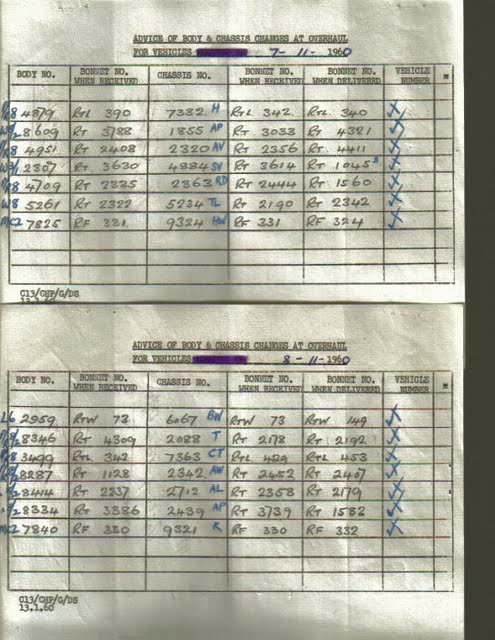 ADVICE OF BODY & CHASSIS CHANGES AT OVERHAUL
FOR VEHICLES 7-11-1960
BODY NO. BONNET NO. WHEN RECEIVED CHASSIS NO. BONNET NO. WHEN RECEIVED BONNET NO. WHEN DELIVERED VEHICLE NUMBER
4879 RTL 390 7332 H RTL 342 RTL 340
8609 RT 3788 1855 AP RT 3033 RT 4321
4951 RT 2408 2320 AV RT 2356 RT 4411
2307 RT 3630 4384 SV RT 3614 RT 1045
4709 RT 2325 2363 RD RT 2444 RT 1560
W8 5261 RT 2322 5234 TL RT 2190 RT 2342
MK2 7825 RF 331 9324 HW RF 331 RF 324
C13/CHP/G/DS
13.1.60
ADVICE OF BODY & CHASSIS CHANGES AT OVERHAUL
FOR VEHICLES 8-11-1960
BODY NO. BONNET NO. WHEN RECEIVED CHASSIS NO. BONNET NO. WHEN RECEIVED BONNET NO. WHEN DELIVERED VEHICLE NUMBER
L6 2959 RTW 73 6067 BW RTW 73 RTW 149
8346 RT 4309 2088 T RT 2178 RT 2192
3499 RTL 342 7363 CT RTL 429 RTL 453
8287 RT 1128 2342 AW RT 2452 RT 2407
8414 RT 2237 2712 AL RT 2358 RT 2179
8334 RT 3386 2439 AP RT 3739 RT 1582
MK2 7840 RF 330 9321 K RF 330 RF 332
C13/CHP/G/DS
13.1.60